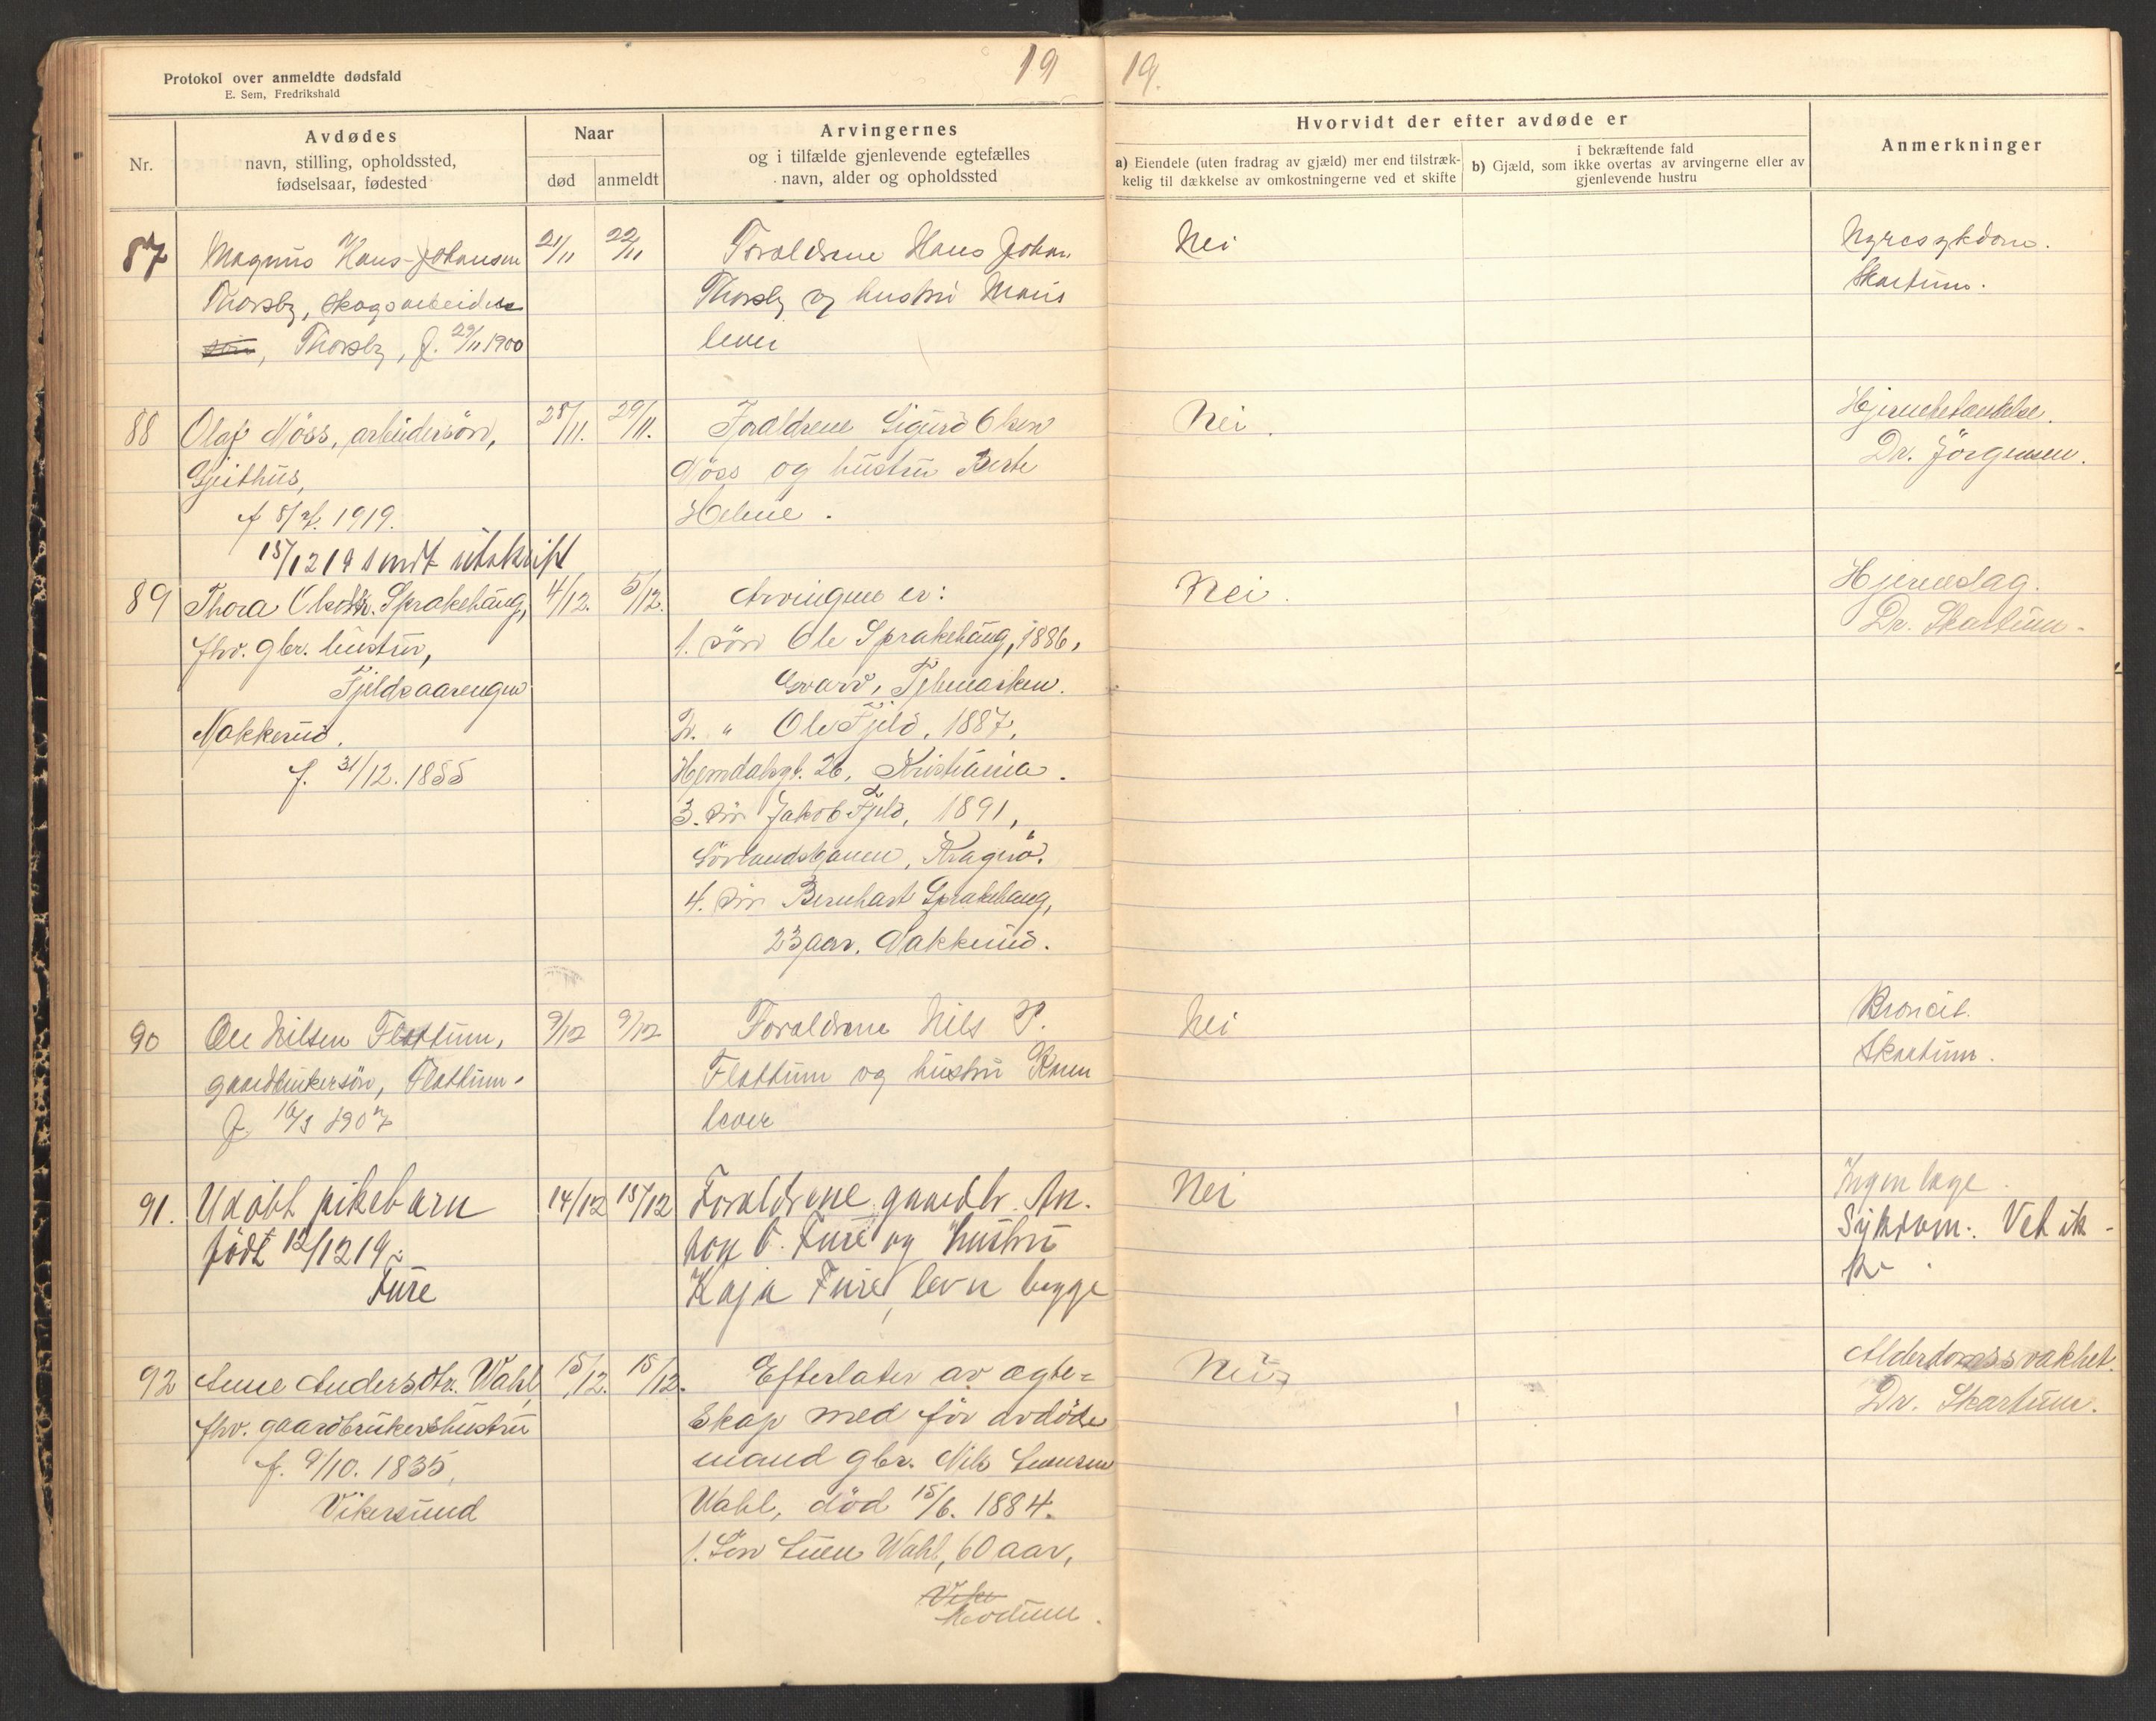 Protokol over anmeldte dødsfald
E. Sem, Fredrikshald
19
19.
Nr.
Avdødes
navn, stilling, opholdssted,
fødselsaar, fødested
Naar
død
anmeldt
Arvingernes
og i tilfælde gjenlevende egtefælles
navn, alder og opholdssted
Hvorvidt der efter avdøde er
a) Eiendele (uten fradrag av gjæld) mer end tilstræk-
kelig til dækkelse av omkostningerne ved et skifte
i bekræftende fald
b) Gjæld, som ikke overtas av arvingerne eller av
gjenlevende hustru
Anmerkninger
87 Magnus Hans-Johansen 21/11 22/11 Foraldrene Hans Johan Nei Nyresykdom.
Thorsby, skogsarbeider Thorsby og hustru Skartum.
Thorsby, f. 29/11 1900 lever
88 Olaf Nöss, arbeidersön, 28/11. 29/11. Foraldrene Sigurd Olsen Nei. Hjernebetændelse.
Geithus, Nöss og hustru Berte Dr. Jörgensen.
f 8/7. 1919. Helene.
15/12 19 sendt utskrift
89 Thora Olsdtr. Sprakehaug, 4/12. 5/12. Arvingene er: Nei. Hjerneslag.
fhv. gbr. hustru, 1. sön Ole Sprakehaug, 1886, Dr. Skartum.
Fjeldsaarengen Gvarv, Telemarken.
Nakkerud. 2. " Ole Fjeld, 1887,
f. 31/12. 1855 Hemdalsgt. 26, Kristiania.
3. sön Jakob Fjeld, 1891,
Sörlandsbanen, Kragerö.
4. sön Bernhart Sprakehaug,
23 aar. Nakkerud.
90 Ole Nilsen Flattum, 9/12 9/12 Foraldrene Nils P. Nei Broncit.
gaardbrukersön, Flattum. Flattum og hustru Karen Skartum.
f. 16/3 1907 lever
91. Udöbt pikebarn 14/12 15/12 Foraldrene gaardbr. An. Nei Ingen læge
födt 12/12 19. ton O. Fure og hustru Sykdom. Vet ik-
Fure Kaja Fure, leve begge ke.
92 Anne Andersdtr. Wahl, 15/12. 15/12. Efterlater av ægte= Nei Alderdomssvakhet.
fhv. gaardbrukershustru skap med för avdöde Dr. Skartum.
f. 9/10. 1835, mand gbr. Nils Svensen
Vikersund Wahl, död 15/6. 1884.
1. Sön Sven Wahl, 60 aar,
Modum.